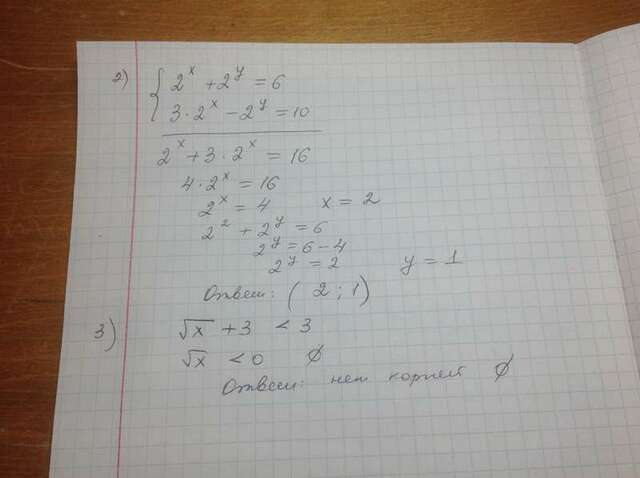 2) { 2^x + 2^y = 6
3 · 2^x − 2^y = 10
2^x + 3 · 2^x = 16
4 · 2^x = 16
2^x = 4 x = 2
2^2 + 2^y = 6
2^y = 6 − 4
2^y = 2 y = 1
Ответ: ( 2 ; 1 )
3) √x + 3 < 3
√x < 0 ∅
Ответ: нет корней ∅